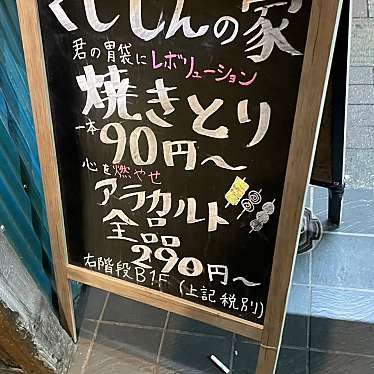 くししんの家
君の胃袋にレボリューション
焼きとり
一本90円~
心を燃やせ
アラカルト
全品
290円~
右階段B1F(上記税別)